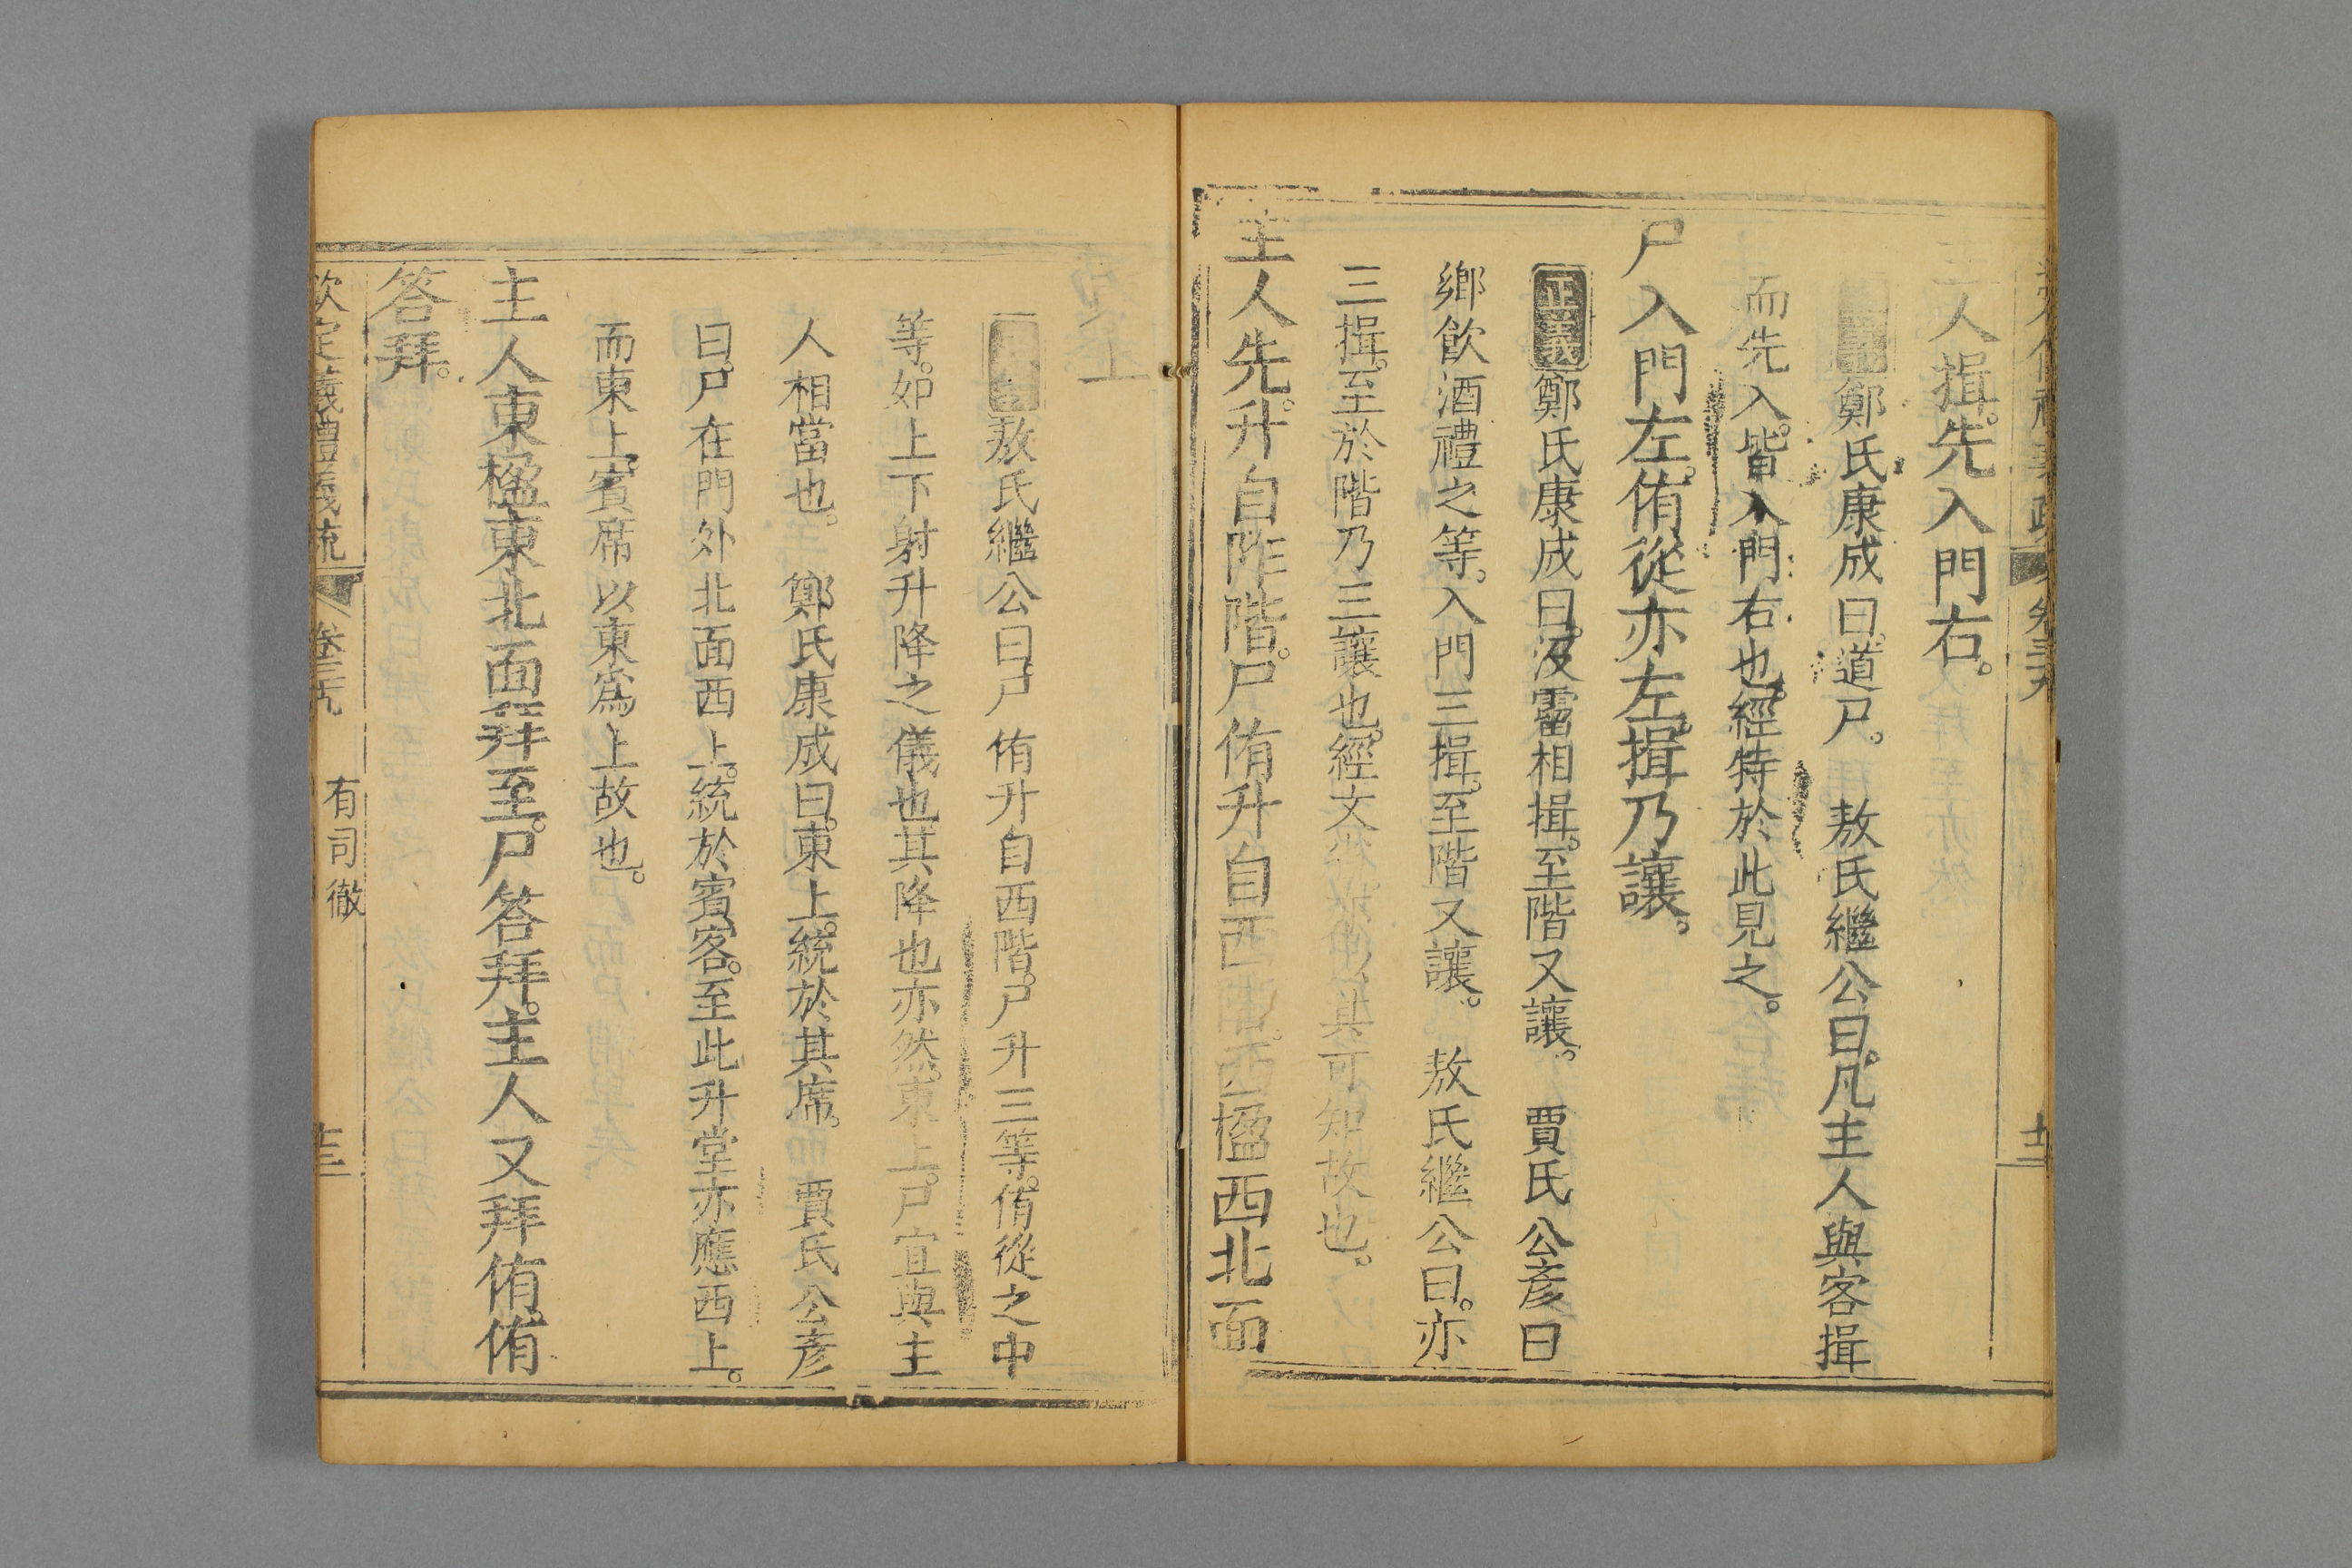 主人揖。先入門右。
正義鄭氏康成曰。道尸。 敖氏繼公曰。凡主人與客揖
而先入。皆入門右也。經特於此見之。
尸入門左。侑從。亦左。揖。乃讓。
正義鄭氏康成曰。沒霤相揖。至階又讓。 賈氏公彥曰
鄉飮酒禮之等。入門三揖。至階又讓。 敖氏繼公曰。亦
三揖。至於階乃三讓也。經文省其可知故也。
主人先升自阼階。尸侑升自西階。西楹西。北面
東上。
正義敖氏繼公曰。尸侑升自西階。尸升三等。侑從之中
等。如上下射升降之儀也。其降也亦然。東上。尸宜與主
人相當也。 鄭氏康成曰。東上。統於其席。 賈氏公彥
曰。尸在門外北面西上。統於賓客。至此升堂亦應西上。
而東上。賓席以東爲上故也。
主人東楹東。北面拜至。尸答拜。主人又拜侑。侑
答拜。
欽定儀禮義疏 卷三十九 有司徹